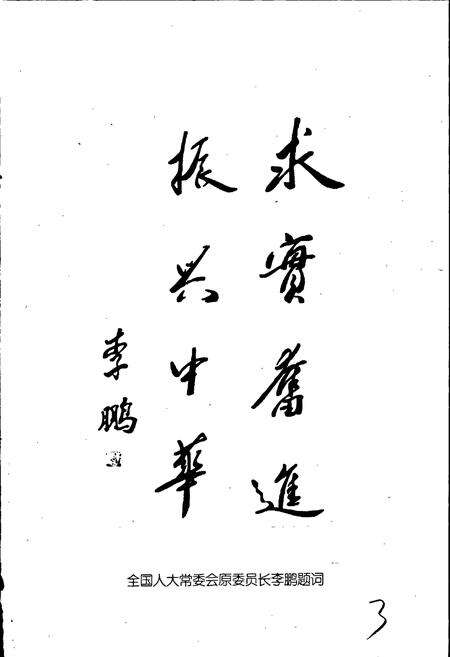 求實奮進
振兴中華
李鹏
全国人大常委会原委员长李鹏题词
3